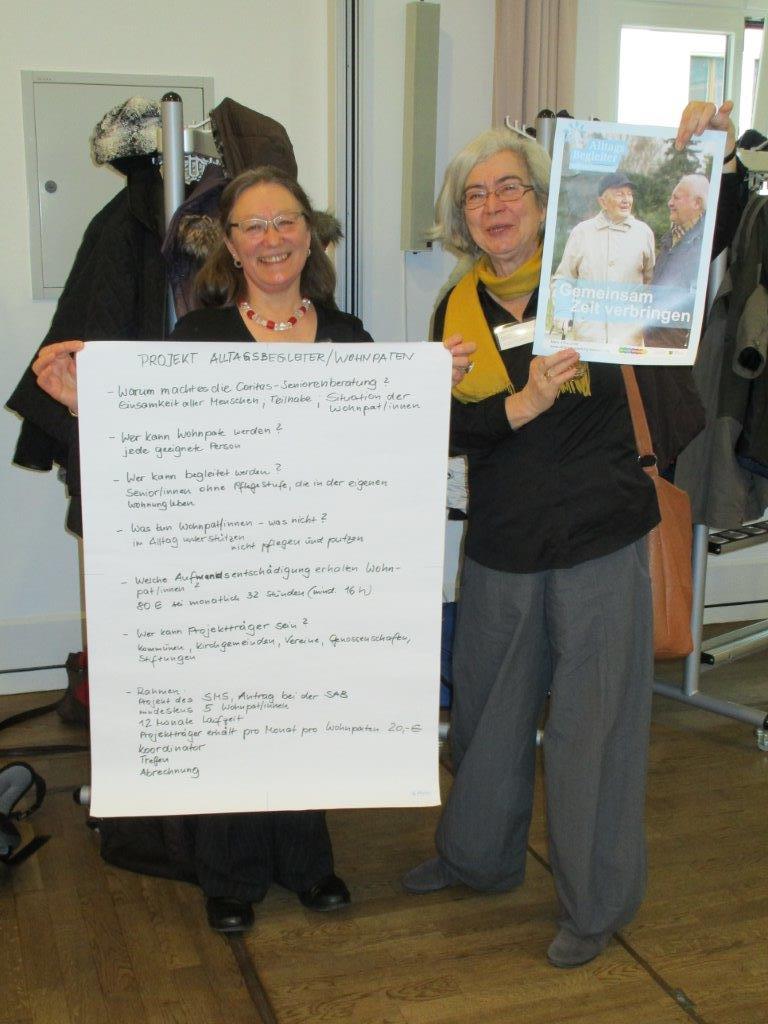 PROJEKT ALLTAGSBEGLEITER/WOHNPATEN
- Warum macht es die Caritas-Seniorenberatung?
Einsamkeit aller Menschen, Teilhabe; Situation der
Wohnpat/innen
- Wer kann Wohnpate werden?
jede geeignete Person
- Wer kann begleitet werden?
Senior/innen ohne Pflegestufe, die in der eigenen
Wohnung leben
- Was tun Wohnpat/innen - was nicht?
im Alltag unterstützen
nicht pflegen und putzen
- Welche Aufwandsentschädigung erhalten Wohn-
pat/innen?
80 € bei monatlich 32 Stunden (mind. 16 h)
- Wer kann Projektträger sein?
Kommunen, Kirchgemeinden, Vereine, Genossenschaften,
Stiftungen
- Rahmen:
Projekt des SMS, Antrag bei der SAB
mindestens 5 Wohnpat/innen
12 Monate Laufzeit
Projektträger erhält pro Monat pro Wohnpaten 20,-€
Koordinator
Treffen
Abrechnung
Alltags
Begleiter
Gemeinsam
Zeit verbringen